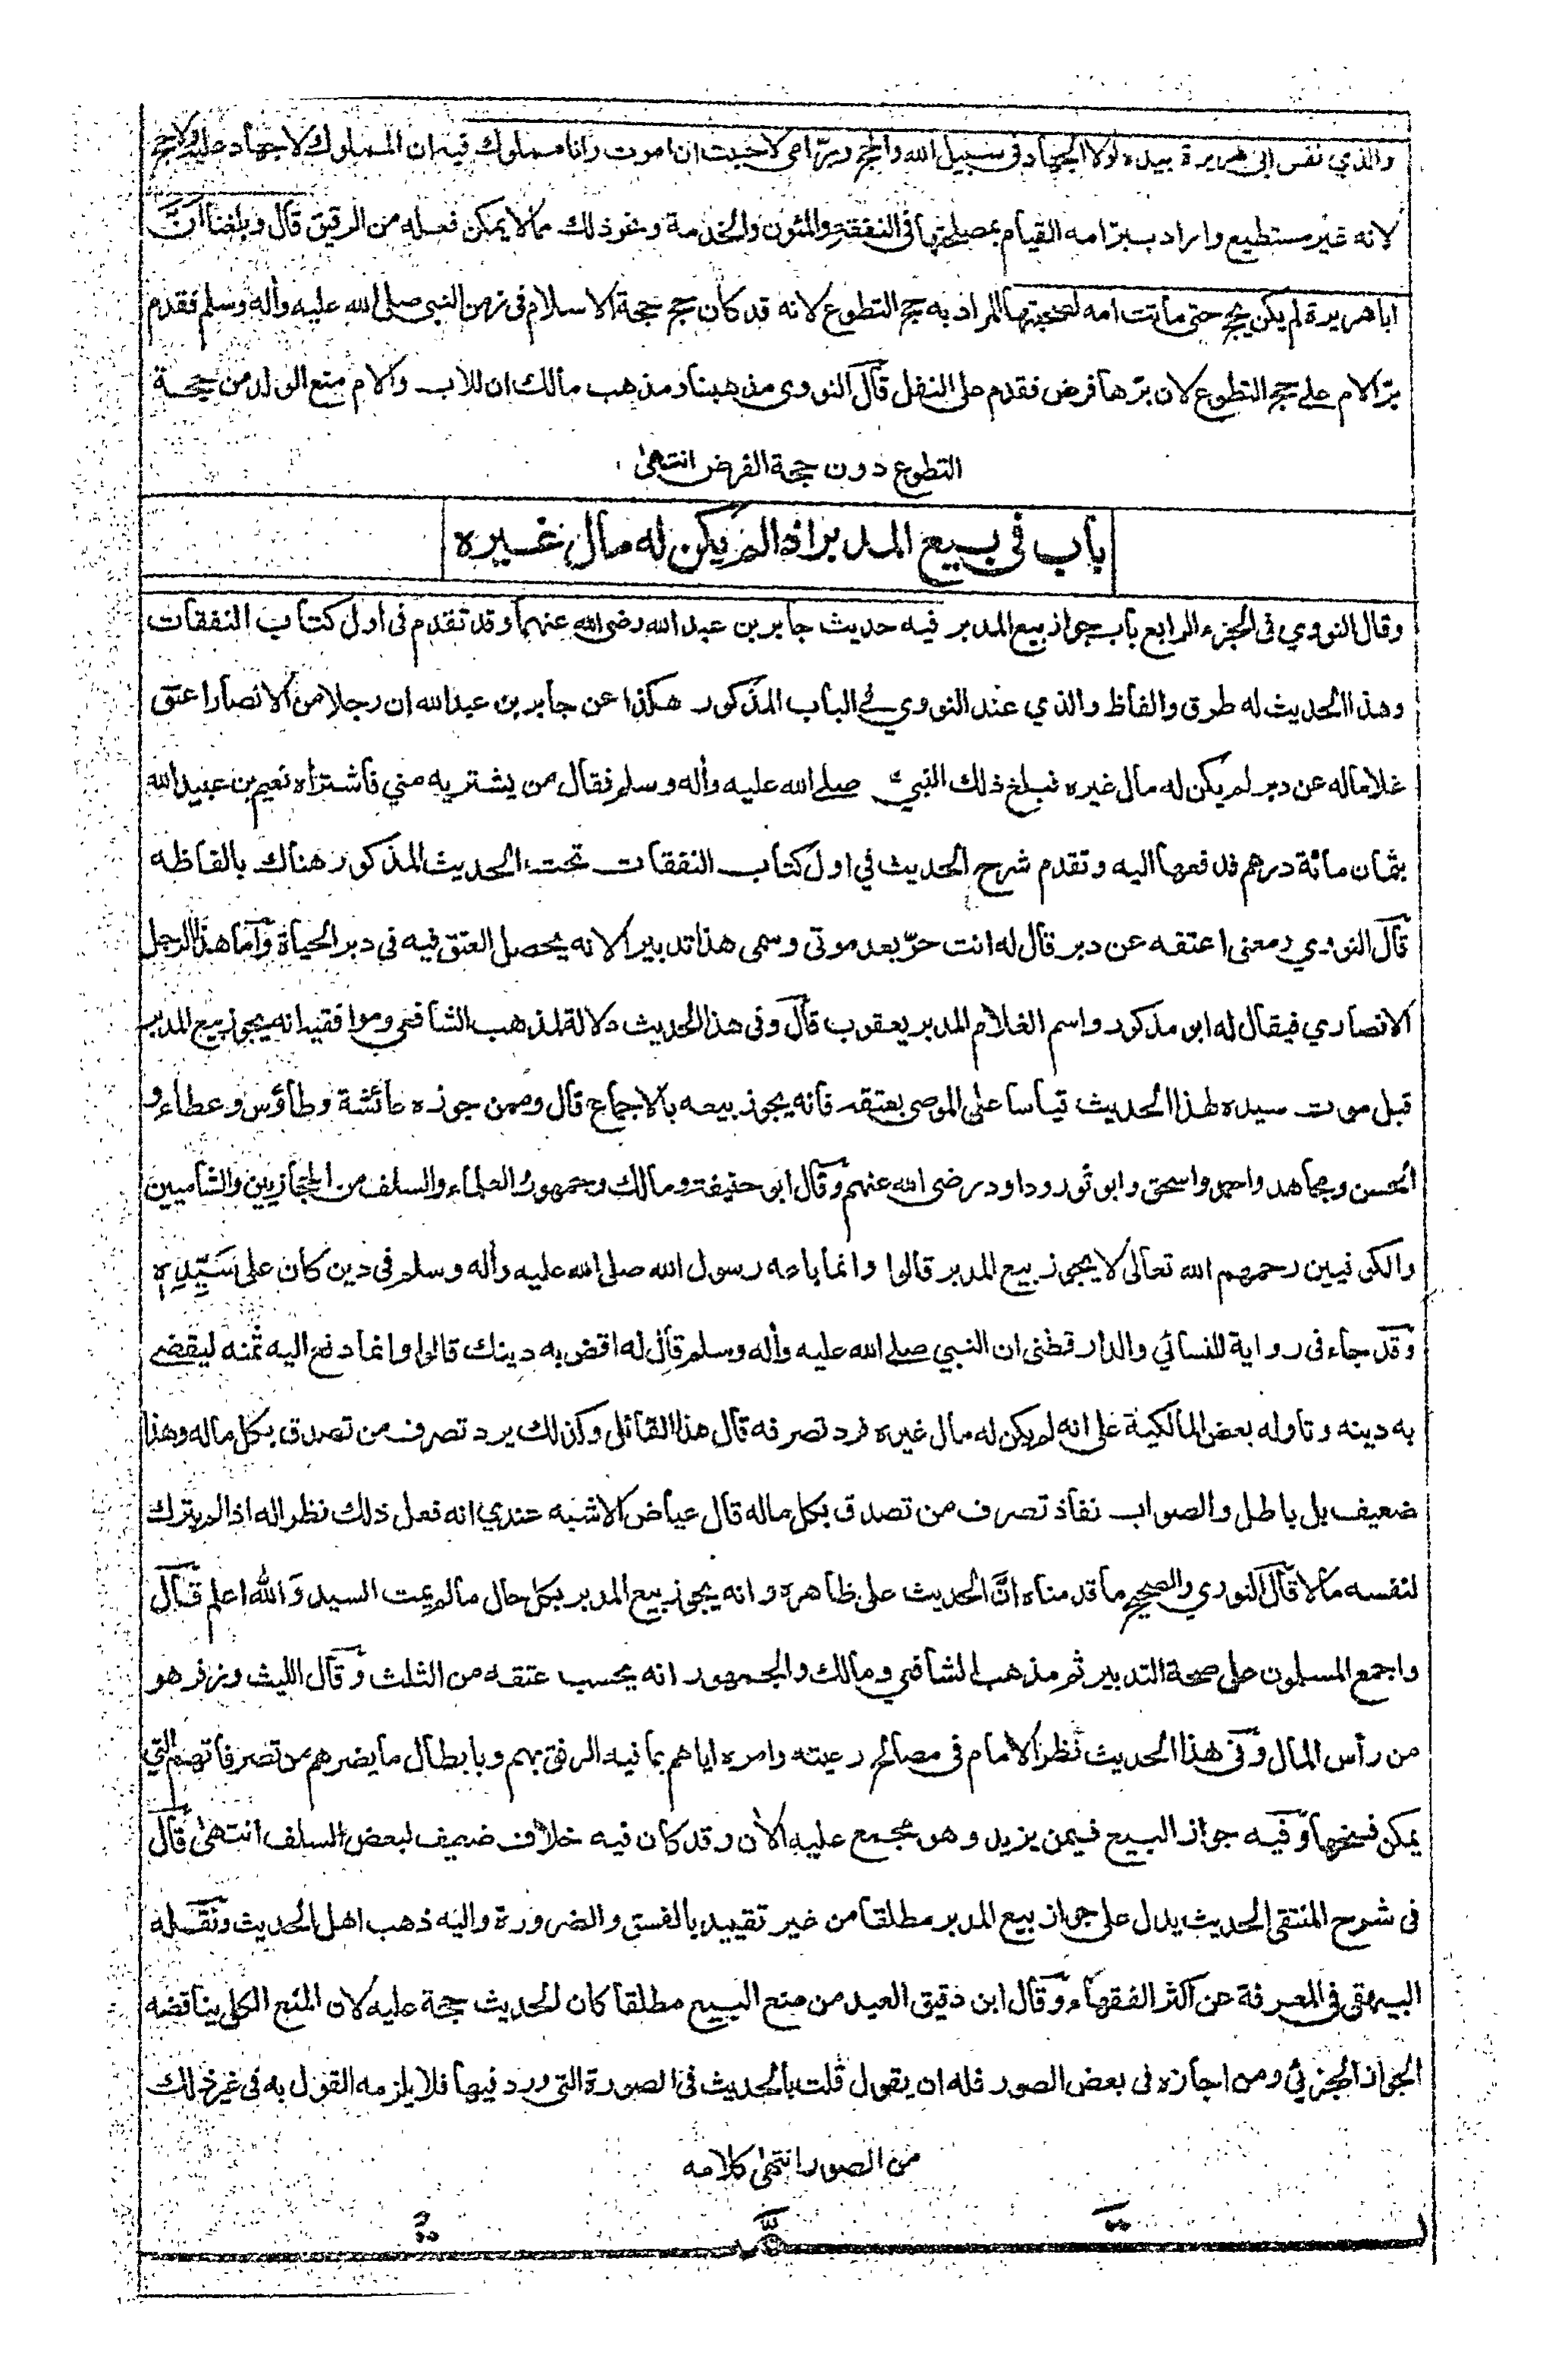 والذي نفس ابى هريرة بيده لولا الجهاد فى سبيل الله والحج وبرّ امى لاحببت ان اموت وانا مملوك فيه ان المملوك لا جهاد عليه ولا حج
لانه غير مستطيع واراد ببرّ امه القيام بمصلحتها فى النفقة والمئون والخدمة ونحو ذلك مما لا يمكن فعله من الرقيق قال وبلغنا انّ
ابا هريرة لم يكن يحج حتى ماتت امه لصحبتها المراد به حج التطوع لانه قد كان حج حجة الاسلام فى زمن النبى صلى الله عليه وأله وسلم فقدم
برّ الام على حج التطوع لان برّها فرض فقدم على النفل قال النووى مذهبنا ومذهب مالك ان للاب والام منع الولد من حجة
التطوع دون حجة الفرض انتهى
باب فى بيع المدبر اذا لم يكن له مال غيره
وقال النووي فى الجزء الرابع باب جواز بيع المدبر فيه حديث جابر بن عبد الله رضى الله عنهما وقد تقدم فى اول كتاب النفقات
وهذا الحديث له طرق والفاظ والذي عند النووي فے الباب المذكور هكذا عن جابر بن عبد الله ان رجلا من الانصار اعتق
غلاما له عن دبر لم يكن له مال غيره فبلغ ذلك النبي صلى الله عليه وأله وسلم فقال من يشتريه مني فاشتراه نعيم بن عبيد الله
بثمان مائة درهم فدفعها اليه وتقدم شرح الحديث في اول كتاب النفقات تحت الحديث المذكور هناك بالفاظه
قال النووي ومعنى اعتقه عن دبر قال له انت حرّ بعد موتى وسمى هذا تدبيرا لانه يحصل العتق فيه في دبر الحياة وأما هذا الرجل
الانصاري فيقال له ابو مذكور واسم الغلام المدبر يعقوب قال وفى هذا الحديث دلالة لمذهب الشافعي وموافقيه انه يجوز بيع المدبر
قبل موت سيده لهذا الحديث قياسا على الموصى بعتقه فانه يجوز بيعه بالاجماع قال وممن جوزه عائشة وطاؤس وعطاء و
الحسن ومجاهد واحمد واسحق وابو ثور وداود رضى الله عنهم وقال ابو حنيفة ومالك وجمهور العلماء والسلف من الحجازيين والشاميين
والكوفيين رحمهم الله تعالى لا يجوز بيع المدبر قالوا وانما باعه رسول الله صلى الله عليه وأله وسلم فى دين كان على سَيِّدِه
وقد جاء فى رواية للنسائي والدارقطنى ان النبي صلى الله عليه وأله وسلم قال له اقض به دينك قالوا وانما دفع اليه ثمنه ليقضے
به دينه وتاوله بعض المالكية على انه لم يكن له مال غيره فرد تصرفه قال هذا القائل وكذلك يرد تصرف من تصدق بكل ماله وهذا
ضعيف بل باطل والصواب نفاذ تصرف من تصدق بكل ماله قال عياض الاشبه عندي انه فعل ذلك نظرا له اذ لم يترك
لنفسه مالا قال النووي والصحيح ما قدمناه انَّ الحديث على ظاهره وانه يجوز بيع المدبر بكل حال مالم يمت السيد وَالله اعلم قال
واجمع المسلمون على صحة التدبير ثم مذهب الشافعي ومالك والجمهور انه يحسب عتقه من الثلث وقال الليث وزفر هو
من رأس المال وفى هذا الحديث نظر الامام فى مصالح رعيته وامره اياهم بما فيه الرفق بهم وبابطال ما يضرهم من تصرفاتهم التي
يمكن فسخها وفيه جواز البيع فيمن يزيد وهو مجمع عليه الأن وقد كان فيه خلاف ضعيف لبعض السلف انتهى قال
فى شرح المنتقى الحديث يدل على جواز بيع المدبر مطلقا من غير تقييد بالفسق والضرورة واليه ذهب اهل الحديث ونقله
البيهقى فى المعرفة عن اكثر الفقهاء وقال ابن دقيق العيد من منع البيع مطلقا كان الحديث حجة عليه لان المنع الكلى يناقضه
الجواز الجزئي ومن اجازه فى بعض الصور فله ان يقول قلت بالحديث فى الصورة التى ورد فيها فلا يلزمه القول به فى غير ذلك
من الصور انتهى كلامه